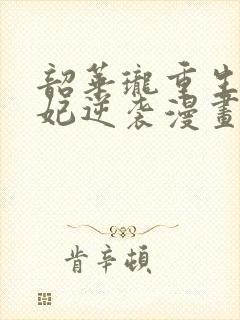 韶華瓏重生
妃逆袭漫畫
肯辛頓